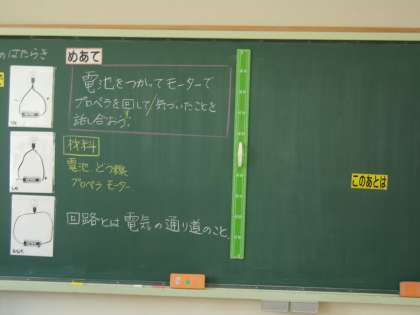 のはたらき
めあて
電池をつかってモーターで
プロペラを回して/気づいたことを
話し合おう!
材料
電池 どう線
プロペラ モーター
回路とは電気の通り道のこと。
このあとは